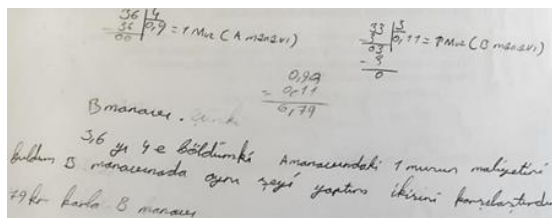 36 | 4
- 36 | 0,9 = 1 Muz (A manavı)
00
33 | 3
- 3 | 0,11 = 1 Muz (B manavı)
03
- 3
0
0,90
- 0,11
0,79
B manavı. çünkü
3,6 yı 4 e böldümki A manavındaki 1 muzun maliyetini
buldum B manavınada aynı şeyi yaptım ikisini karşılaştırdım
79 kr karla B manavı